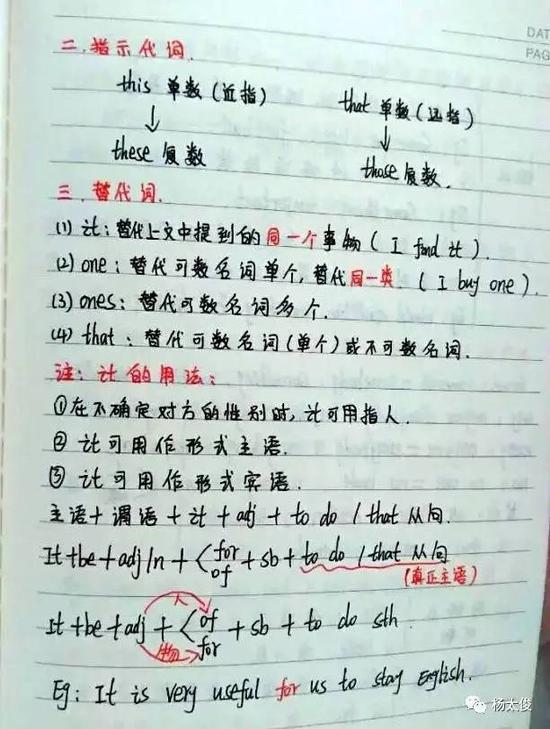 DAT
PAG
二.指示代词.
this 单数(近指) that 单数(远指)
↓ ↓
these 复数 those 复数.
三.替代词.
(1) it：替代上文中提到的同一个事物( I find it ).
(2) one：替代可数名词单个,替代同一类 ( I buy one ).
(3) ones：替代可数名词多个.
(4) that：替代可数名词(单个)或不可数名词.
注：it 的用法：
①在不确定对方的性别时,it可用指人.
② it 可用作形式主语.
③ it 可用作形式宾语.
主语+谓语+it+adj+to do / that 从句.
It+be+adj/n+<for of+sb+to do / that 从句
(真正主语)
人
It+be+adj+<of for+sb+to do sth.
物
Eg: It is very useful for us to stay English.
杨太俊